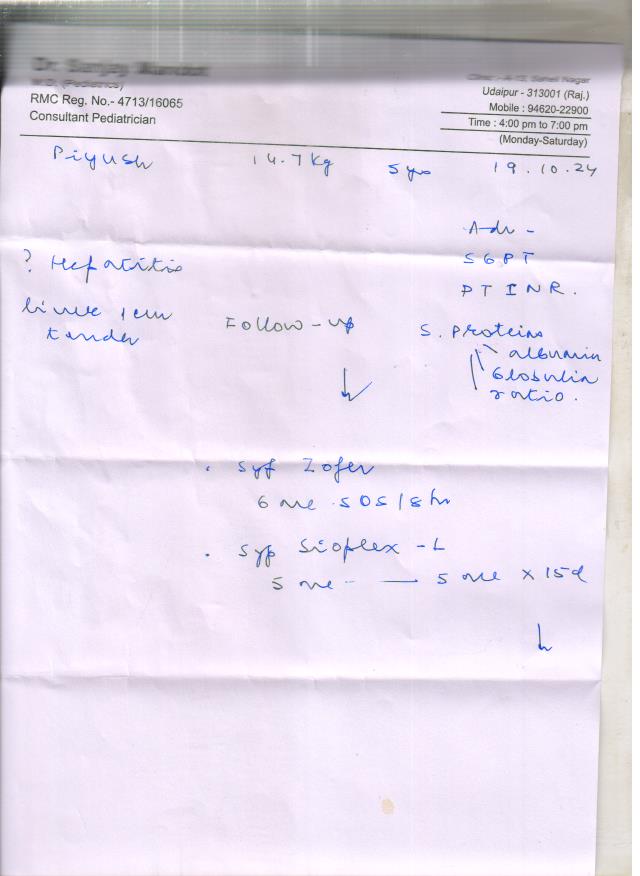 RMC Reg. No.- 4713/16065
Consultant Pediatrician
Udaipur - 313001 (Raj.)
Mobile : 94620-22900
Time : 4:00 pm to 7:00 pm
(Monday-Saturday)
Piyush 14.7 kg 5 yrs 19.10.24
Adv -
SGPT
PT INR.
? Hepatitis
liver 1 cm
tender
Follow-up
S. Proteins
albumin
Globulin
ratio.
. Syp Zofer
6 ml SOS / 8 hr
. Syp Sioplex - L
5 ml — 5 ml x 15d